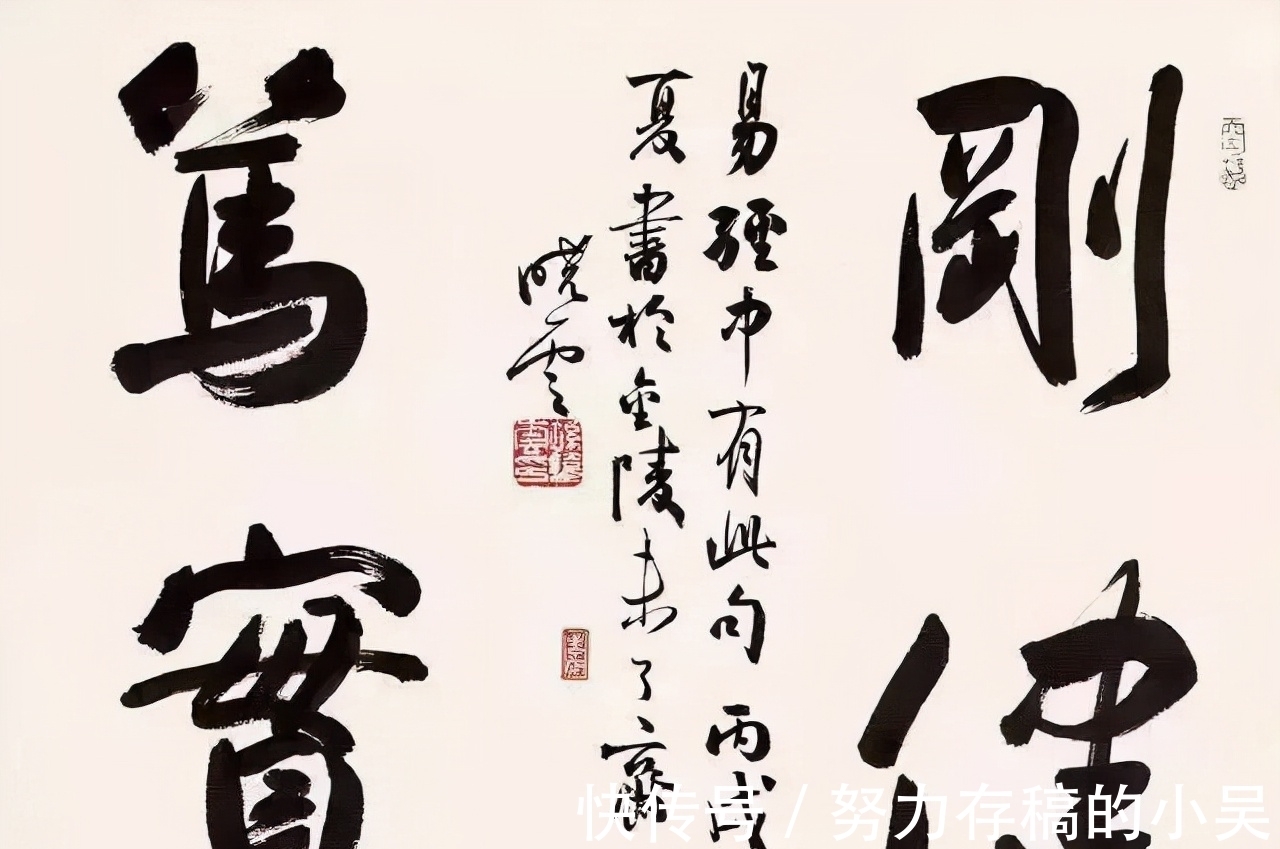 剛健
篤實
易經中有此句丙戌
夏書於金陵未了齋
曉雲
快传号 / 努力存稿的小吴